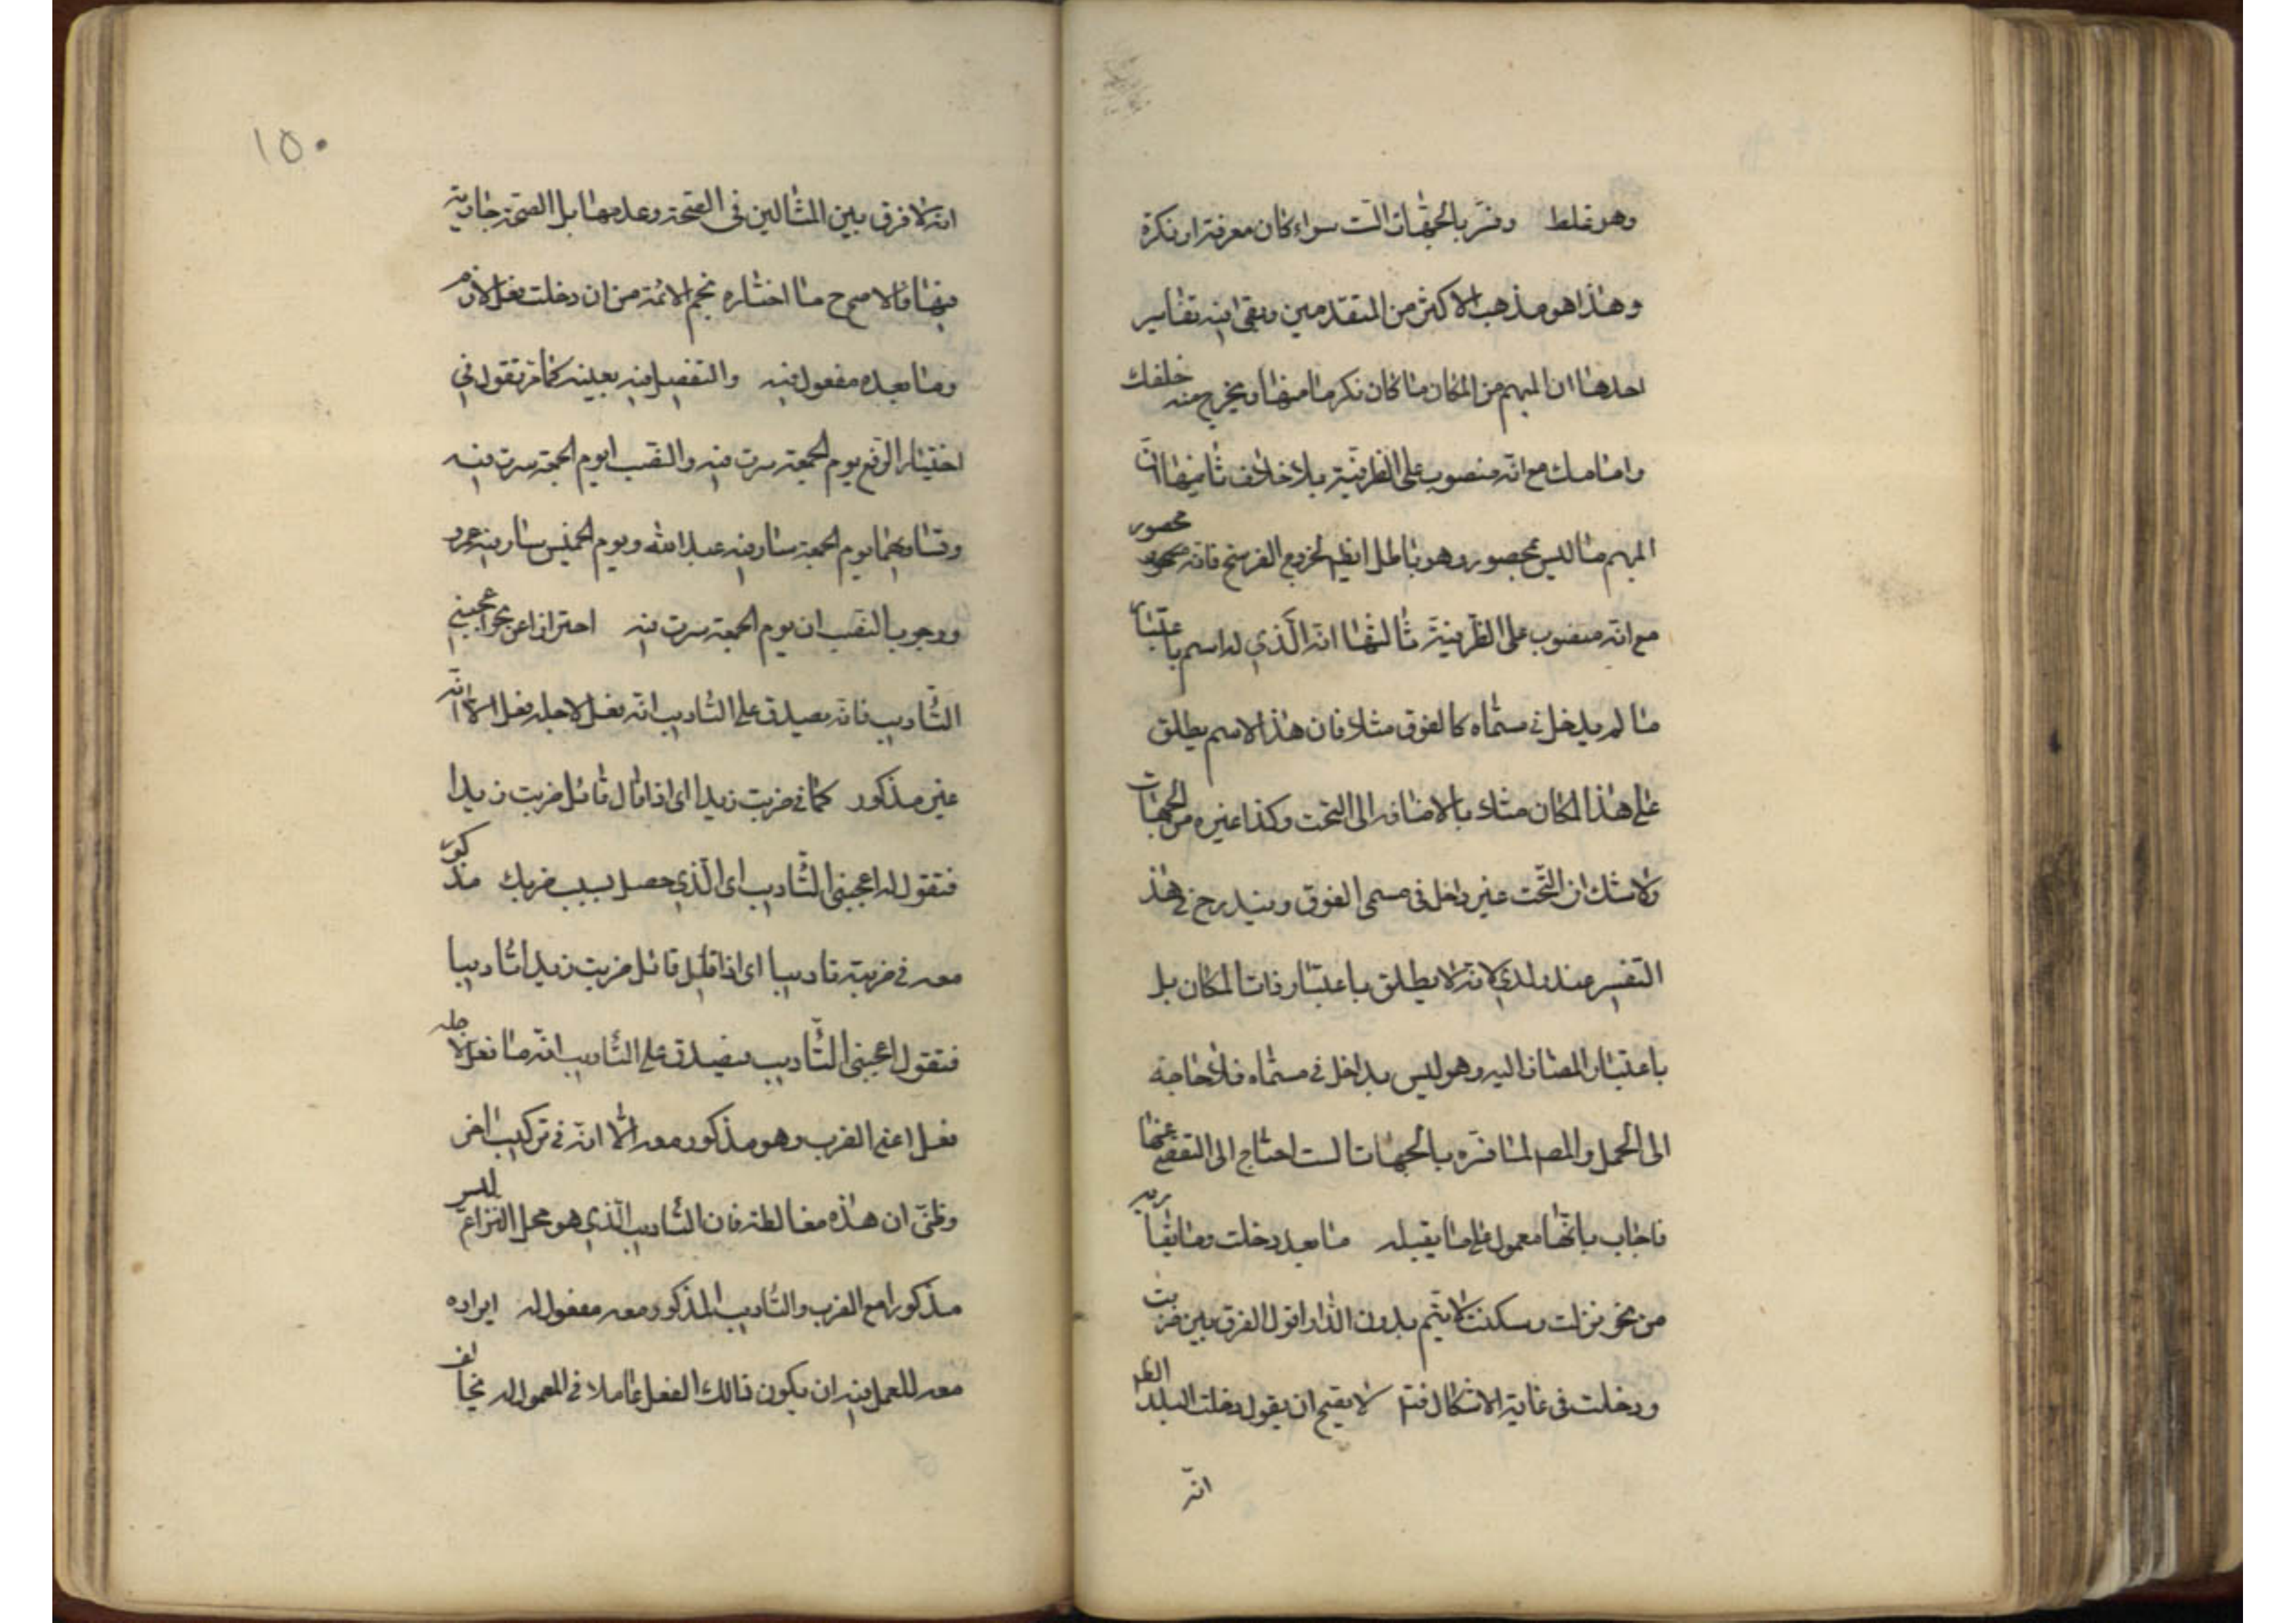 وهو غلط وفسر بالجهات الست سواء كان معرفة او نكرة
وهذا هو مذهب الاكثر من المتقدمين وبقى فيه تفاسير
احدها ان المبهم من المكان ما كان نكرة ما منها ويخرج منه خلفك
وامامك مع انه منصوب على الظرفية بلا خلاف ثانيها ان
المبهم ما ليس بمحصور وهو باطل ايضا لخروج الفرسخ فانه محصور
مع انه منصوب على الظرفية ثالثها انه الذي له اسم باعتبار
ما لم يدخل في مسماه كالفوق مثلا فان هذا الاسم يطلق
على هذا المكان مثلا بالاضافه الى التحت وكذا غيره من الجهات
ولا شك ان التحت غير داخل في مسمى الفوق ويندرج في هذ
التفسير عند ولدى لانه لا يطلق باعتبار ذات المكان بل
باعتبار المضاف اليه وهو ليس بداخل في مسماه فلا حاجة
الى الحمل والمص لما فسره بالجهات الست احتاج الى التفصي عنها
فاجاب بانها معمول على ما يقبله ما بعد دخلت وما
من نحو نزلت وسكنت لا يتم بدون الدار اقول الفرق بين ضربت
ودخلت في غاية الاشكال لا يقبح ان يقول دخلت البلد
انه
١٥٠
انه لا فرق بين المثالين في الصحة وعدمها بل الصحة جارية
فيها فالاصح ما اختاره نجم الائمة من ان دخلت فعل لازم
وما بعده مفعول فيه والتفصيل فيه بعينه كما مر تقول في
اختيار الرفع يوم الجمعة سرت فيه والنصب ايوم الجمعة سرت فيه
وتساويهما يوم الجمعة سار فيه عبد الله ويوم الخميس سار فيه عمرو
ووجوب النصب ان يوم الجمعة سرت فيه احترازا عن نحو اعجبني
التاديب فانه يصدق على التاديب انه فعل لاجله فعل الا انه
غير مذكور كما في ضربت زيدا اى اذا قال قائل ضربت زيدا
فتقول له اعجبني التاديب اى الذي حصل بسبب ضربك مذكور
معه في ضربته تاديبا اى اذا قيل قائل ضربت زيدا تاديبا
فتقول اعجبني التاديب يصدق على التاديب انه ما فعل لاجله
فعل اعنى الضرب وهو مذكور معه الا انه في تركيب اخر
وظنى ان هذه مغالطة فان التاديب الذي هو محل النزاع ليس
مذكورا مع الضرب والتاديب المذكور معه مفعول له ايراده
معه للعمل فيه ان يكون ذالك الفعل عاملا في المعمول له